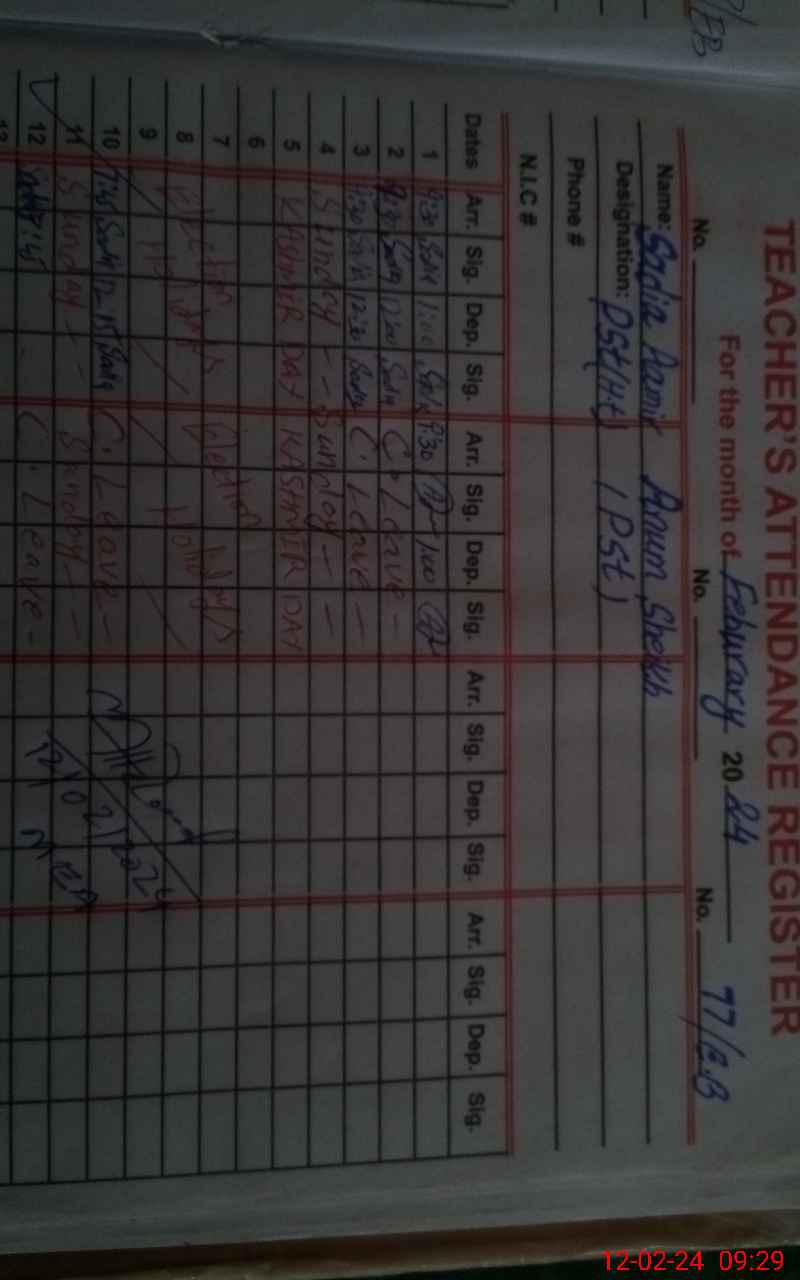 /EB
TEACHER'S ATTENDANCE REGISTER
For the month of Feburary 2024
No. No. No. 77/E.B
Name: Sadia Aamir Anum Sheikh
Designation: PST(H.t) (PST)
Phone #
N.I.C #
Dates Arr. Sig. Dep. Sig. Arr. Sig. Dep. Sig. Arr. Sig. Dep. Sig. Arr. Sig. Dep. Sig.
1 9:30 Sadia 1:00 Sadia 9:30 1:00
2 9:30 Sadia 12:00 Sadia C. Leave -
3 9:30 Sadia 12:30 Sadia C. Leave -
4 Sunday - - Sunday - -
5 KASHMIR DAY KASHMIR DAY
6
7 Election Election
8 Holidays Holidays
9
10 7:45 Sadia 12-15 Sadia C. Leave -
11 Sunday - - Sunday - -
12 Sadia 7:45 C. Leave -
12/02/2024
13
12-02-24 09:29